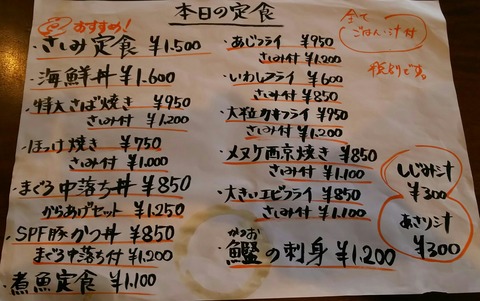 本日の定食
おすすめ!
・さしみ定食 ¥1.500
・海鮮丼 ¥1.600
・特大さば焼き ¥950
さしみ付 ¥1.200
・ほっけ焼き ¥750
さしみ付 ¥1.000
・まぐろ中落ち丼 ¥850
からあげセット ¥1.250
・SPF豚かつ丼 ¥850
まぐろ中落付 ¥1.200
・煮魚定食 ¥1.100
・あじフライ ¥950
さしみ付 ¥1.200
・いわしフライ ¥600
さしみ付 ¥850
・大粒カキフライ ¥950
さしみ付 ¥1.200
・メヌケ西京焼き ¥850
さしみ付 ¥1.100
・大きいエビフライ ¥850
さしみ付 ¥1.100
かつお
・鰹の刺身 ¥1.200
全て
ごはん・汁付
税別です。
しじみ汁
¥300
あさり汁
¥300